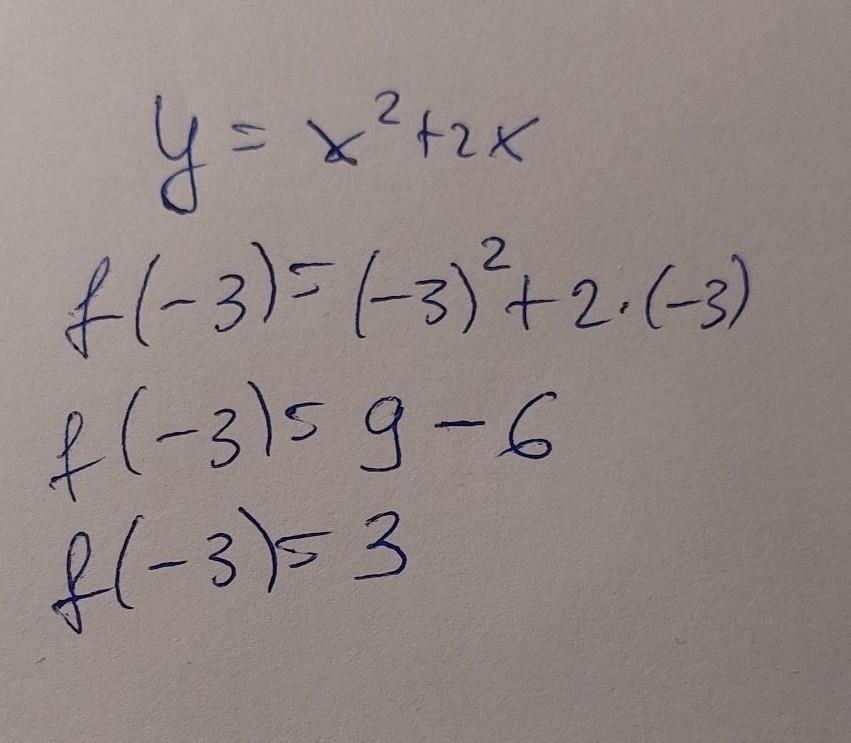 y = x²+2x
f(-3)=(-3)²+2·(-3)
f(-3)= 9-6
f(-3)= 3